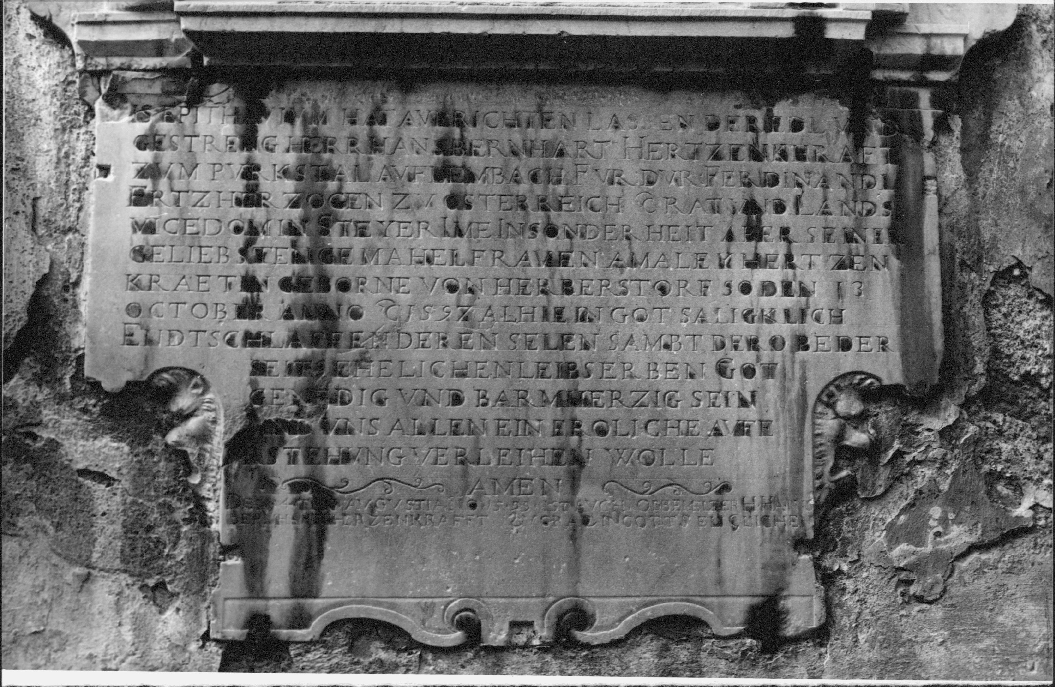 HAT AVFRICHTEN LASSEN DER EDL VND
GESTRENG HERR HANS BERNHART HERTZENKRAFT
ZVM PVRKSTAL AVF LEMBACH FVR DVR FERDINANDI
ERTZHERZOGEN ZV OSTERREICH RAT VND LANDS
VICEDOM IN STEYER IME INSONDERHEIT ABER SEINER
GELIEBSTEN GEMAHEL FRAVEN AMALEY HERTZEN
KRAFTIN GEBORNE VON HERBERSTORF SO DEN 13
OCTOBER ANNO 1597 ALHIE IN GOT SALIGKLICH
ENDTSCHLAFFEN DEREN SELEN SAMBT DER OBEDER
SEITS EHELICHEN LEIBSERBEN GOT
GENEDIG VND BARMHERZIG SEIN
VND VNS ALLEN EIN FROLICHE AVFF
STEHVNG VERLEIHEN WOLLE
AMEN
HERZENKRAFFT IN GOTT